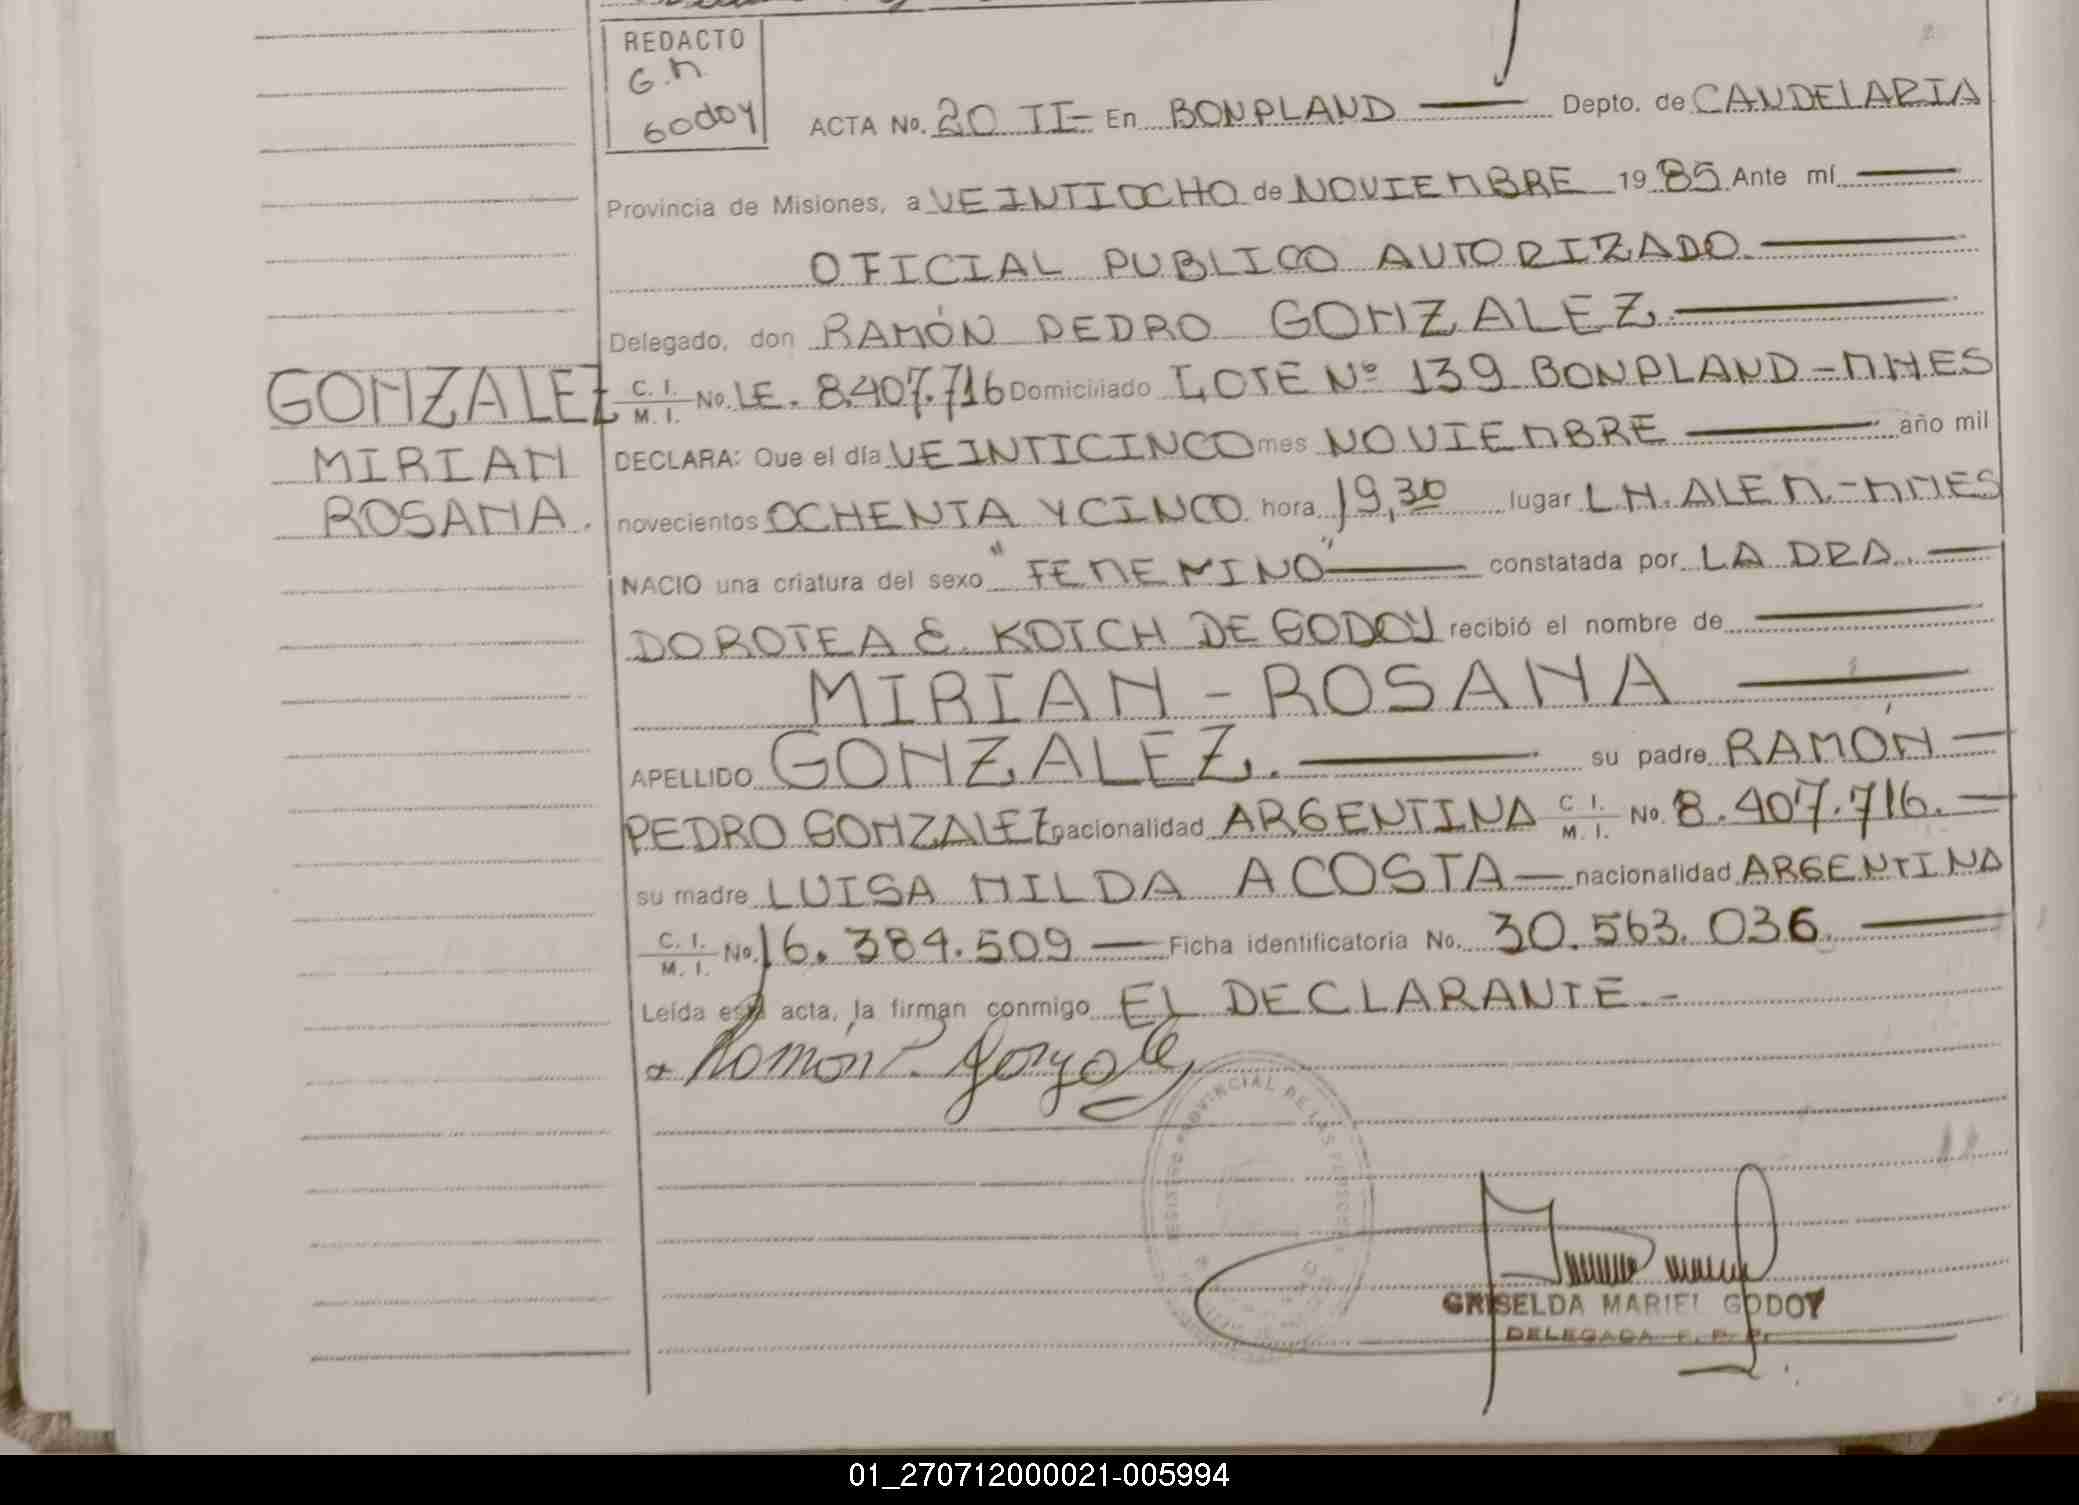 REDACTO
G.M
Godoy
ACTA No. 20 II- En BONPLAND Depto. de CANDELARIA
Provincia de Misiones, a VEINTIOCHO de NOVIEMBRE 19 85 Ante mí
OFICIAL PUBLICO AUTORIZADO.
Delegado, don RAMÓN PEDRO GONZALEZ.
GONZALEZ
MIRIAN
ROSANA.
C. I. / M. I. No. LE. 8.407.716 Domiciliado LOTE Nº 139 BONPLAND-MNES
DECLARA: Que el día VEINTICINCO mes NOVIEMBRE año mil
novecientos OCHENTA Y CINCO hora 19,30 lugar L.N. ALEM.-MNES
NACIO una criatura del sexo "FEMENINO" constatada por LA DRA.
DOROTEA E. KOTCH DE GODOY recibió el nombre de
MIRIAN - ROSANA
APELLIDO GONZALEZ. su padre RAMÓN
PEDRO GONZALEZ nacionalidad ARGENTINA C. I. / M. I. No. 8.407.716.
su madre LUISA NILDA ACOSTA nacionalidad ARGENTINA
C. I. / M. I. No. 16.384.509 Ficha identificatoria No. 30.563.036.
Leída esta acta, la firman conmigo EL DECLARANTE.-
Ramón P. Gonzalez
REGISTRO PROVINCIAL DE LAS PERSONAS
GRISELDA MARIEL GODOY
DELEGADA R. P. P.
01_270712000021-005994